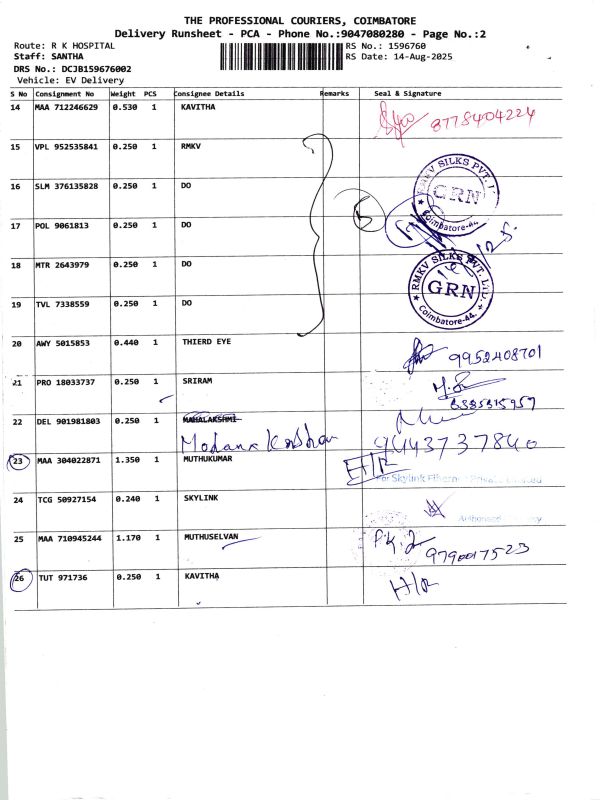 THE PROFESSIONAL COURIERS, COIMBATORE
Delivery Runsheet - PCA - Phone No.:9047080280 - Page No.:2
Route: R K HOSPITAL RS No.: 1596760
Staff: SANTHA RS Date: 14-Aug-2025
DRS No.: DCJB159676002
Vehicle: EV Delivery
S No Consignment No Weight PCS Consignee Details Remarks Seal & Signature
14 MAA 712246629 0.530 1 KAVITHA 8778404224
15 VPL 952535841 0.250 1 RMKV
16 SLM 376135828 0.250 1 DO 5 RMKV SILKS PVT. GRN Coimbatore-44
17 POL 9061813 0.250 1 DO
18 MTR 2643979 0.250 1 DO
19 TVL 7338559 0.250 1 DO RMKV SILKS PVT. LTD., GRN Coimbatore-44.
20 AWY 5015853 0.440 1 THIERD EYE 9952408701
21 PRO 18033737 0.250 1 SRIRAM
22 DEL 901981803 0.250 1 MAHALAKSHMI
9443737840
23 MAA 304022871 1.350 1 MUTHUKUMAR
For Skylink
24 TCG 50927154 0.240 1 SKYLINK
25 MAA 710945244 1.170 1 MUTHUSELVAN 9790017523
26 TUT 971736 0.250 1 KAVITHA